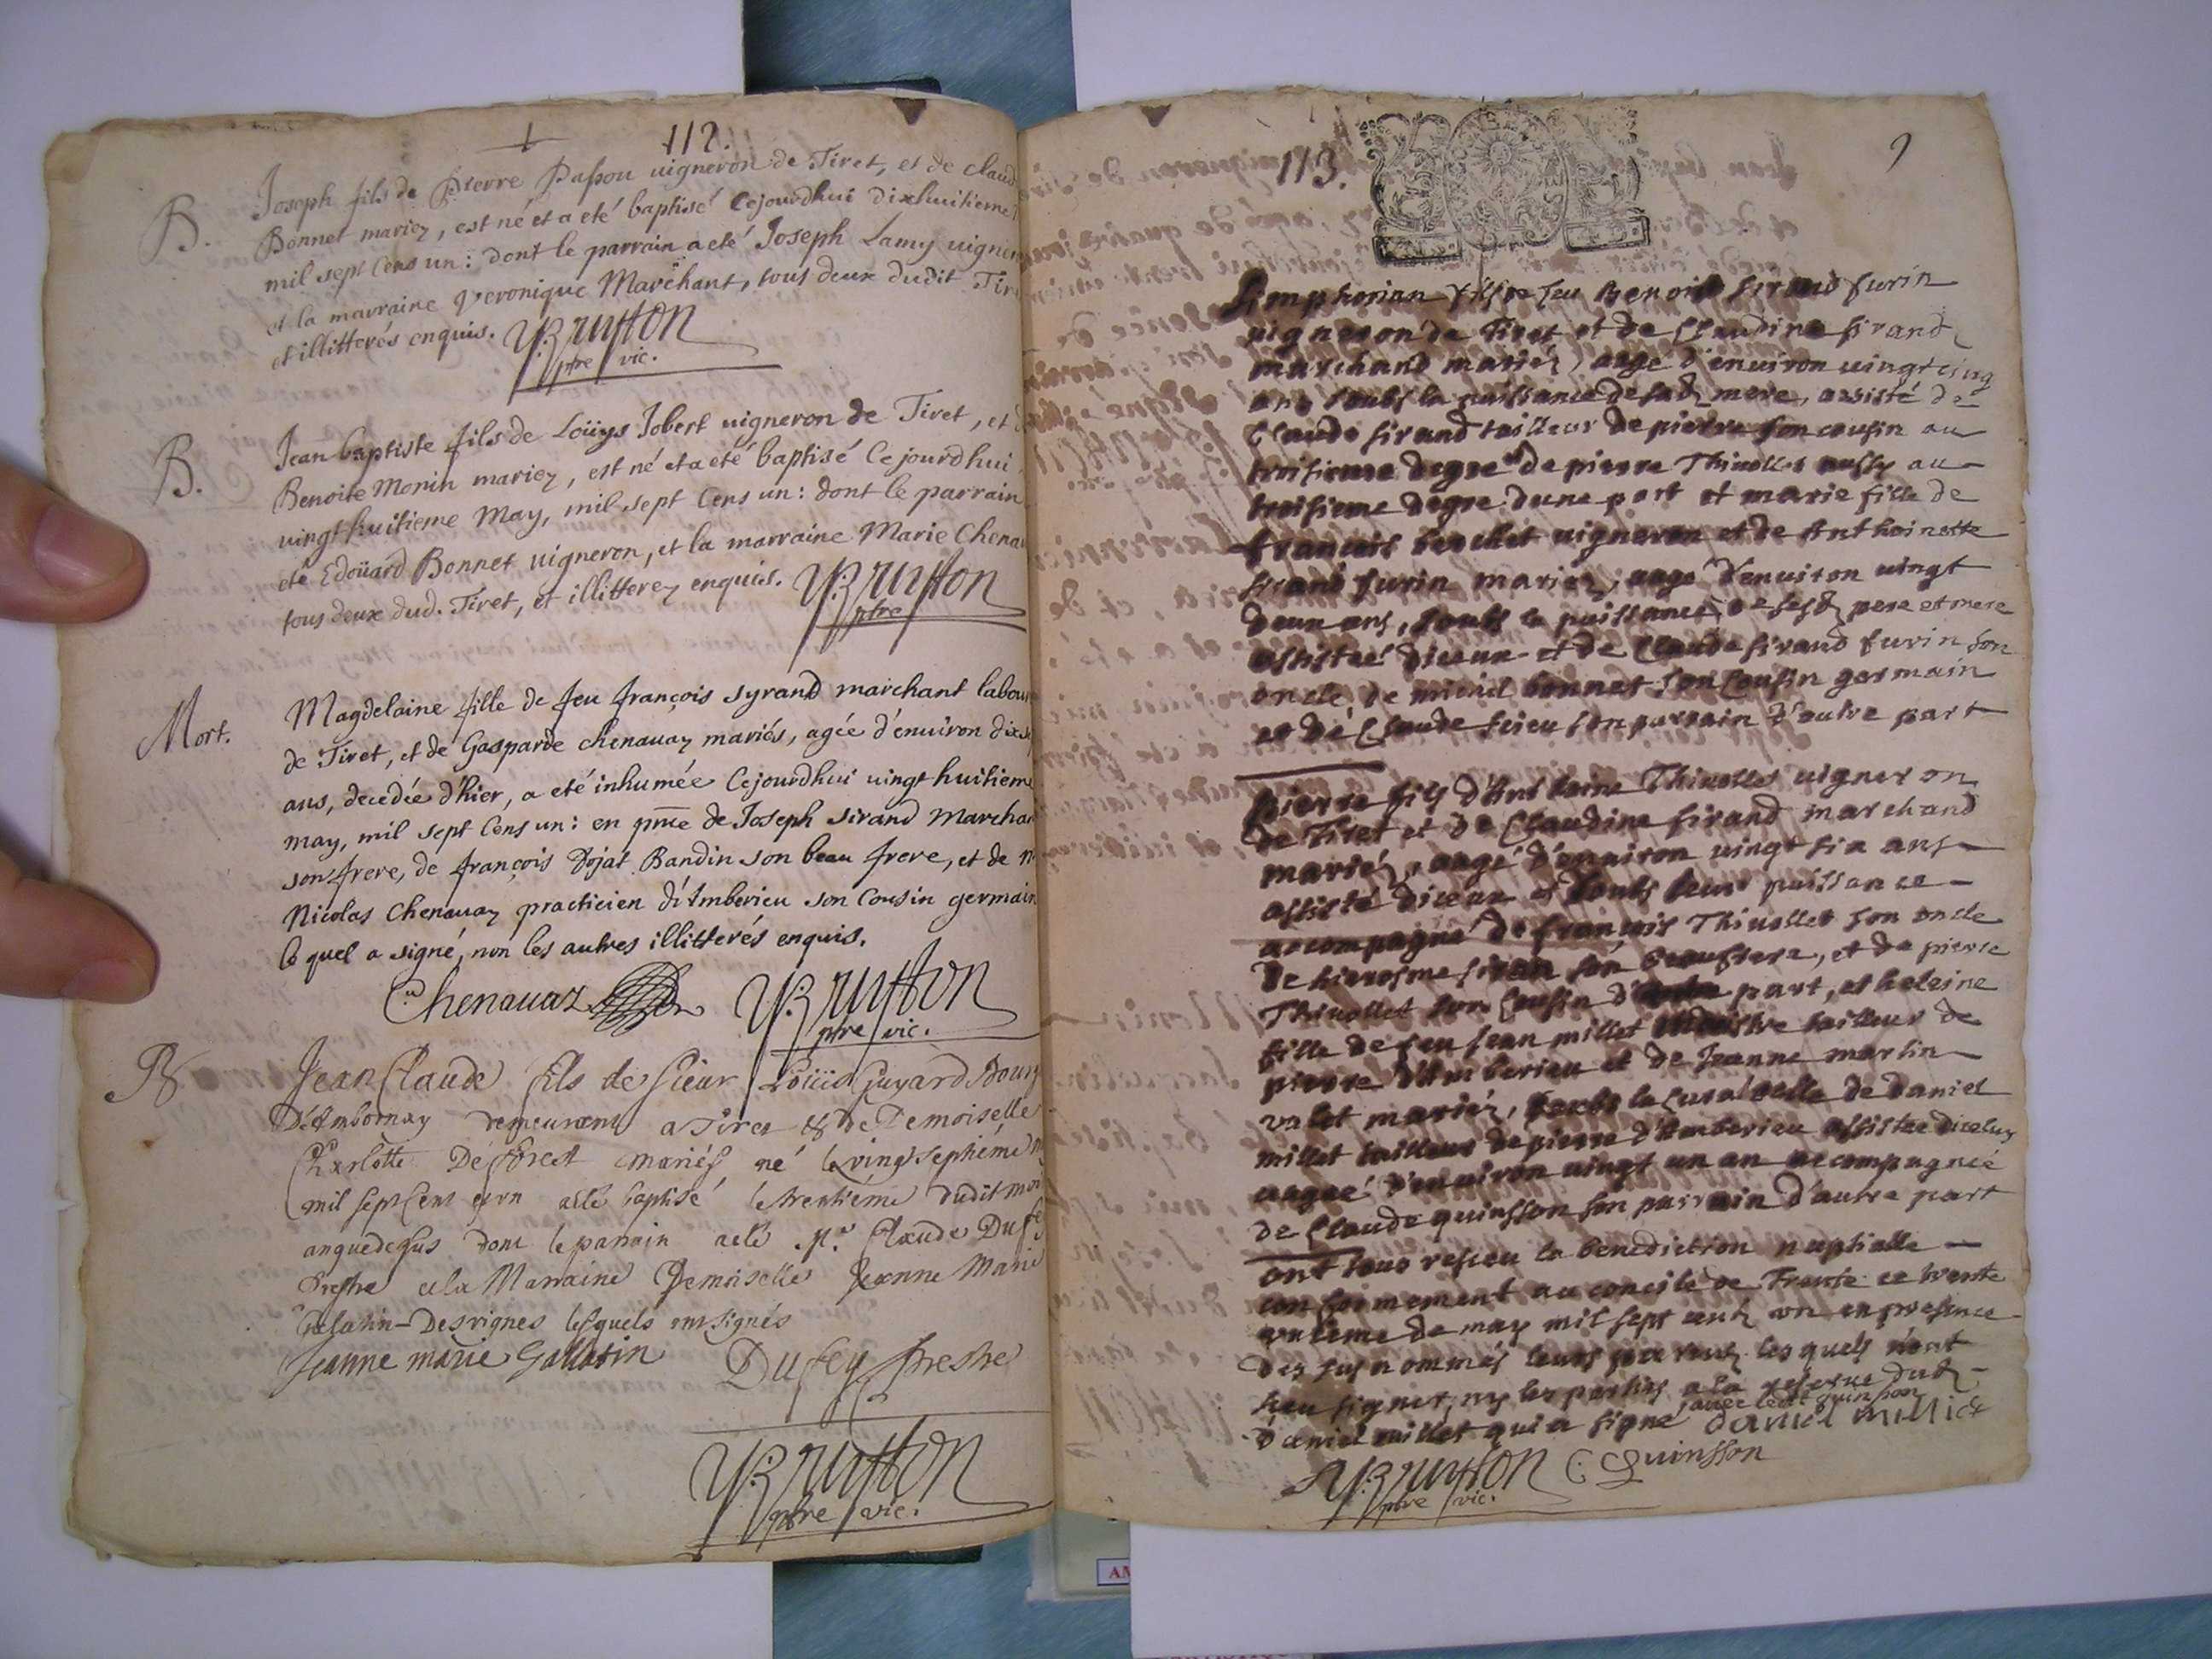 112.
B.
Joseph fils de Pierre Papou vigneron de Tiret, et de claud
Bonnet mariez, est né et a eté baptisé Cejourdhui dixhuitieme
mil sept Cens un : dont le parrain a eté Joseph Lamy vigner
et la marraine Veronique Marchant, tous deux dudit Tir
et illitterés enquis.
ptre vic.
B.
Jean baptiste fils de Loüys Jobert vigneron de Tiret, et
Benoite Monin mariez, est né et a eté baptisé Cejourdhui
vingt huitieme May, mil sept Cens un : dont le parrain
eté Edoüard Bonnet vigneron, et la marraine Marie Chena
tous deux dud. Tiret, et illitterez enquis.
ptre
Mort.
Magdelaine fille de feu françois syrand marchant labou
de Tiret, et de Gasparde chenavaz mariés, agée d'environ dix
ans, decedée d'hier, a eté inhumée Cejourdhui vingt huitieme
may, mil sept Cens un : en pnce de Joseph sirand Marchan
son frere, de françois Dojat Bandin son beau frere, et de
Nicolas Chenavaz practicien d'Amberieu son Cousin germain
le quel a signé, non les autres illitterés enquis.
Chenavaz
ptre vic.
B
Jean Claude fils de sieur Loüis Guyard Bourg
D'Ambornay demeurant a Tiret & de Demoiselle
Charlotte De forest mariés né le vingt septiéme
mil sept Cent et un a eté baptisé le trentiéme dudit moi
an que dessus dont le parrain a eté Mr. Claude Dufe
Prestre et la Marraine Demoiselle Jeanne Marie
Desvignes lesquels ont signés
Jeanne marie Gallatin
Dufey prestre
ptre vic.
113.
9
Simphorian fils de feu Benoist sirand furin
vigneron de Tiret et de Claudine sirand
marchand mariéz, aagé d'environ vingt cinq
ans soubs la puissance de sad. mere, assisté de
Claude sirand tailleur de pierre son cousin au
troisieme degre & de pierre Thivollet aussy au
troisieme degre d'une part et marie fille de
françois berchet vigneron et de Anthoinette
sirand furin mariez, aagé d'environ vingt
deux ans, soubs la puissance de sesd. pere et mere
assistée d'iceux et de Claude sirand furin son
oncle de michel bonnet son Cousin germain
et de Claude son parrain d'autre part
pierre fils d'Anthoine Thivollet vigneron
de Tiret et de Claudine sirand marchand
mariéz, aagé d'environ vingt six ans
assisté d'iceux et soubs leur puissance
accompagné de françois Thivollet son oncle
de hierosme siran son beaufrere, et de pierre
Thivollet son Cousin d' part, et heleine
fille de feu Jean millet tailleur de
pierre d'Amberieu et de Jeanne martin
valet mariéz, soubs la Curatelle de daniel
millet tailleur de pierre d'Amberieu assistée d'iceluy
aagée d'environ vingt un an accompagnée
de Claude quinsson son parrain d'autre part
ont tous receu la benediction nuptialle
conformement au concile de Trente ce trente
unieme de may mil sept centz un en presence
des susnommés leurs parentz lesquels n'ont
sceu signer, ny les parties a la reserve dud.
avec ledit quinson
daniel millet qui a signé
daniel milliet
C Quinsson
ptre vic.